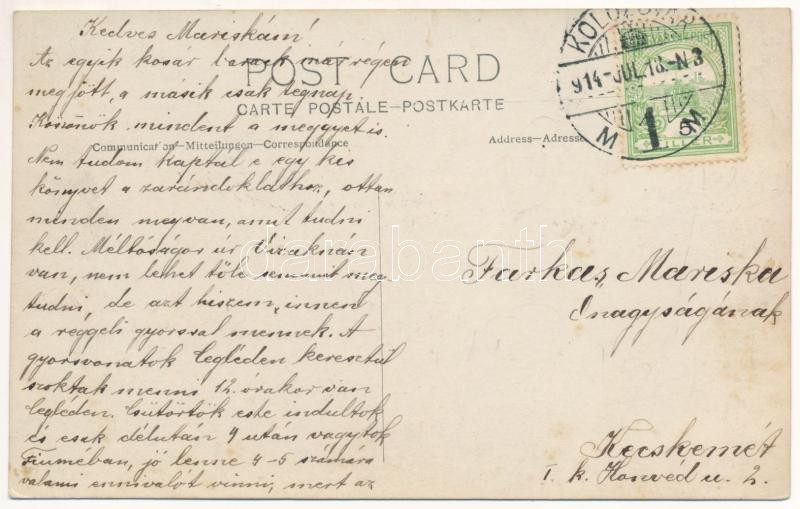 Kedves Mariskám!
Az egyik kosár barack már régen
megjött, a másik csak tegnap.
Köszönök mindent a meggyet is.
Nem tudom kaptál e egy kis
könyvet a zarándoklathoz, ottan
minden megvan, amit tudni
kell. Méltóságos úr Vizaknán
van, nem lehet tőle semmit meg
tudni, de azt hiszem, innend
a reggeli gyorssal mennek. A
gyorsvonatok Cegléden keresztül
szoktak menni 12 órakor van
Cegléden. Csütörtök este indultok
és csak délután 4 után vagytok
Fiuméban, jó lenne 4-5 számára
valami ennivalót vinni, mert az
POST CARD
CARTE POSTALE–POSTKARTE
Communication–Mitteilungen–Correspondance
Address–Adresse
KOLOZSVÁR
914-JUL.18.-N3
M 1 M
5
FILLÉR
Farkas Mariska
Őnagyságának
Kecskemét
I. k. Honvéd u. 2.
darabanth